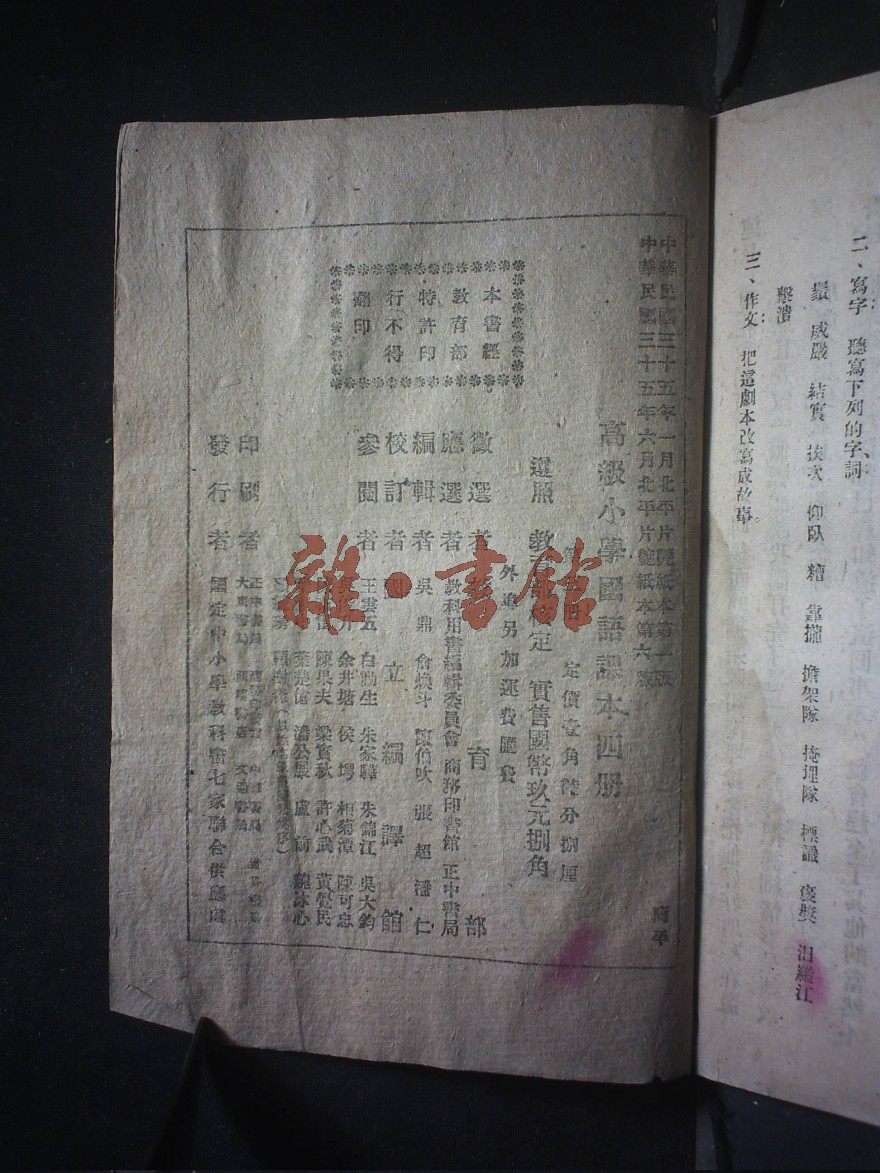 二、寫字：聽寫下列的字、詞
威嚴 結實 挨次 仰臥 糟 靠攏 擔架隊 掩埋隊 標識 獎 汨羅江
擊潰
三、作文：把這劇本改寫成故事。
中華民國三十五年一月北平片艷紙本第一版
中華民國三十五年六月北平片艷紙本第六版
高級小學國語課本四册
定價壹角 分捌厘
遵照 教育部 定 實售國幣玖元捌角
外埠另加運費匯費
本書經
教育部
特許印
行不得
翻印
徵選者 教育部
應選者 教科用書編輯委員會 商務印書館 正中書局
編輯者 吳鼎 俞煥斗 陳伯吹 張超 潘仁
校訂者 國立編譯館
參閱者 王雲五 白動生 朱家驊 朱錦江 吳大鈞
余井塘 侯 柳菊潭 陳可忠
陳果夫 梁實秋 許心武 黃覺民
葉楚傖 潘公展 盧前 魏冰心
印刷者 正中書局
大東書局
發行者 國定中小學教科書七家聯合供應處
雜·書館